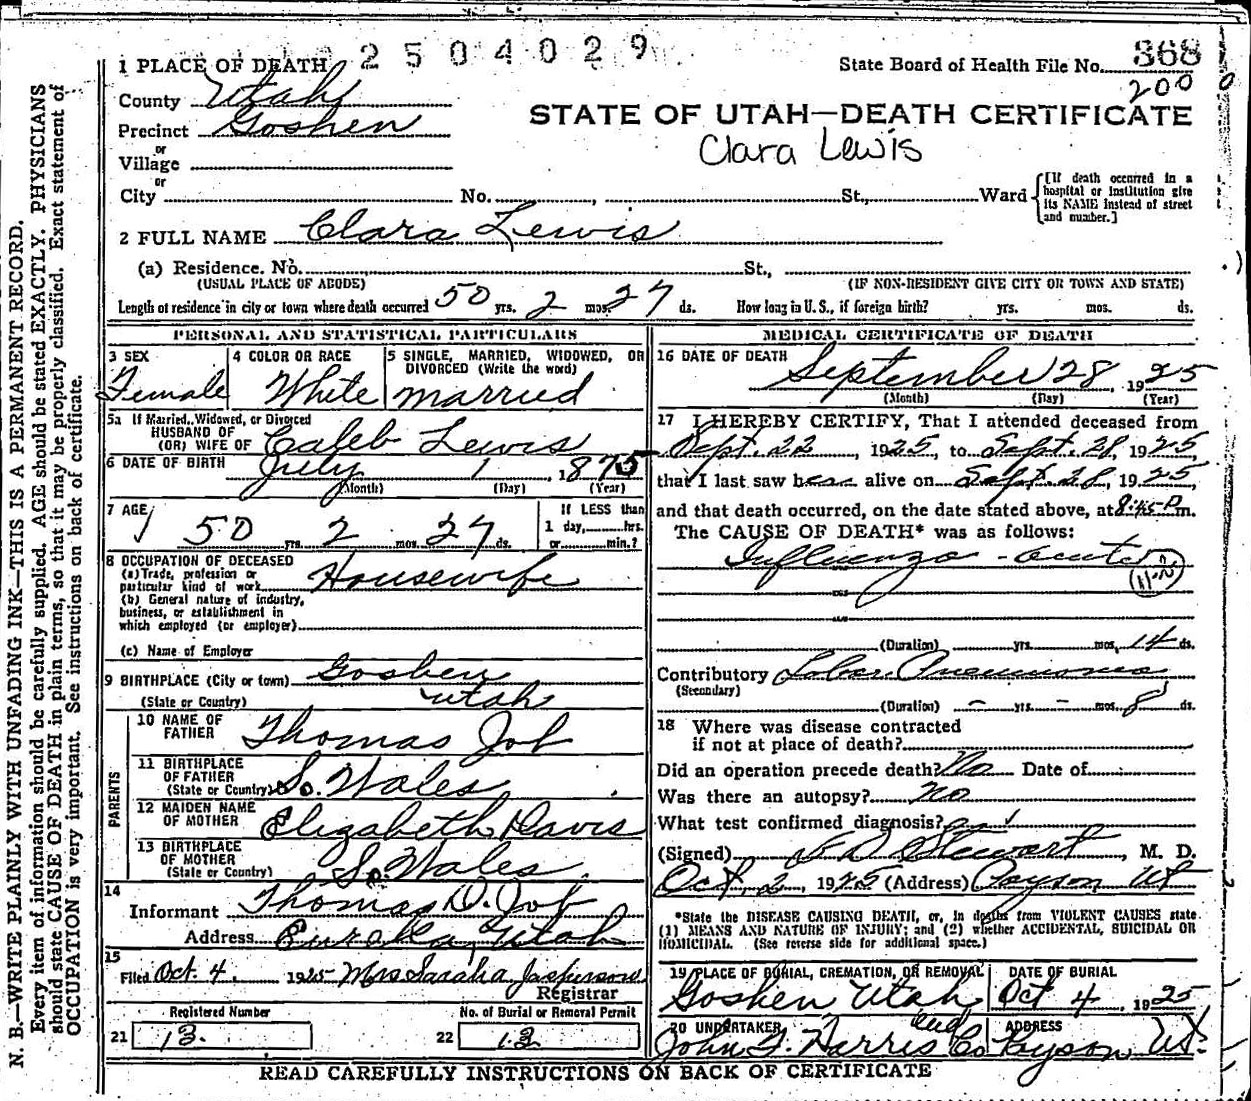 2504029
1 PLACE OF DEATH
State Board of Health File No. 368
200
County Utah
STATE OF UTAH—DEATH CERTIFICATE
Precinct Goshen
Clara Lewis
or
Village
or
City No. , St., Ward
[If death occurred in a
hospital or institution give
its NAME instead of street
and number.]
2 FULL NAME Clara Lewis
(a) Residence. No. St.,
(USUAL PLACE OF ABODE) (IF NON-RESIDENT GIVE CITY OR TOWN AND STATE)
Length of residence in city or town where death occurred 50 yrs. 2 mos. 27 ds. How long in U.S., if foreign birth? yrs. mos. ds.
PERSONAL AND STATISTICAL PARTICULARS
3 SEX
Female
4 COLOR OR RACE
White
5 SINGLE, MARRIED, WIDOWED, OR
DIVORCED (Write the word)
married
5a If Married, Widowed, or Divorced
HUSBAND OF
(OR) WIFE OF Caleb Lewis
6 DATE OF BIRTH July 1, 1875
(Month) (Day) (Year)
7 AGE
50 yrs. 2 mos. 27 ds.
If LESS than
1 day, hrs.
or min.?
8 OCCUPATION OF DECEASED
(a) Trade, profession or
particular kind of work Housewife
(b) General nature of industry,
business, or establishment in
which employed (or employer)
(c) Name of Employer
9 BIRTHPLACE (City or town) Goshen
(State or Country) Utah
PARENTS
10 NAME OF
FATHER Thomas Job
11 BIRTHPLACE
OF FATHER
(State or Country) So. Wales
12 MAIDEN NAME
OF MOTHER Elizabeth Davis
13 BIRTHPLACE
OF MOTHER
(State or Country) So. Wales
14
Informant Thomas D. Job
Address Eureka, Utah
15
Filed Oct. 4, 1925 Mrs Saraha Jasperson
Registrar
Registered Number
21 13.
No. of Burial or Removal Permit
22 13
MEDICAL CERTIFICATE OF DEATH
16 DATE OF DEATH
September 28, 1925
(Month) (Day) (Year)
17 I HEREBY CERTIFY, That I attended deceased from
Sept. 22, 1925, to Sept. 28, 1925,
that I last saw her alive on Sept. 28, 1925,
and that death occurred, on the date stated above, at 8:45 P.m.
The CAUSE OF DEATH* was as follows:
Influenza - acute
(Duration) yrs. mos. 14 ds.
Contributory Lobar Pneumonia
(Secondary)
(Duration) - yrs. - mos. 8 ds.
18 Where was disease contracted
if not at place of death?
Did an operation precede death? No Date of
Was there an autopsy? no
What test confirmed diagnosis?
(Signed) Stewart, M. D.
Oct, 2, 1925 (Address) Payson Ut
*State the DISEASE CAUSING DEATH, or, in deaths from VIOLENT CAUSES state
(1) MEANS AND NATURE OF INJURY; and (2) whether ACCIDENTAL, SUICIDAL OR
HOMICIDAL. (See reverse side for additional space.)
19 PLACE OF BURIAL, CREMATION, OR REMOVAL
Goshen Utah
DATE OF BURIAL
Oct 4, 1925
20 UNDERTAKER
John F. Harris Und Co
ADDRESS
Payson Ut.
READ CAREFULLY INSTRUCTIONS ON BACK OF CERTIFICATE
N. B.—WRITE PLAINLY WITH UNFADING INK—THIS IS A PERMANENT RECORD.
Every item of information should be carefully supplied. AGE should be stated EXACTLY. PHYSICIANS
should state CAUSE OF DEATH in plain terms, so that it may be properly classified. Exact statement of
OCCUPATION is very important. See instructions on back of certificate.